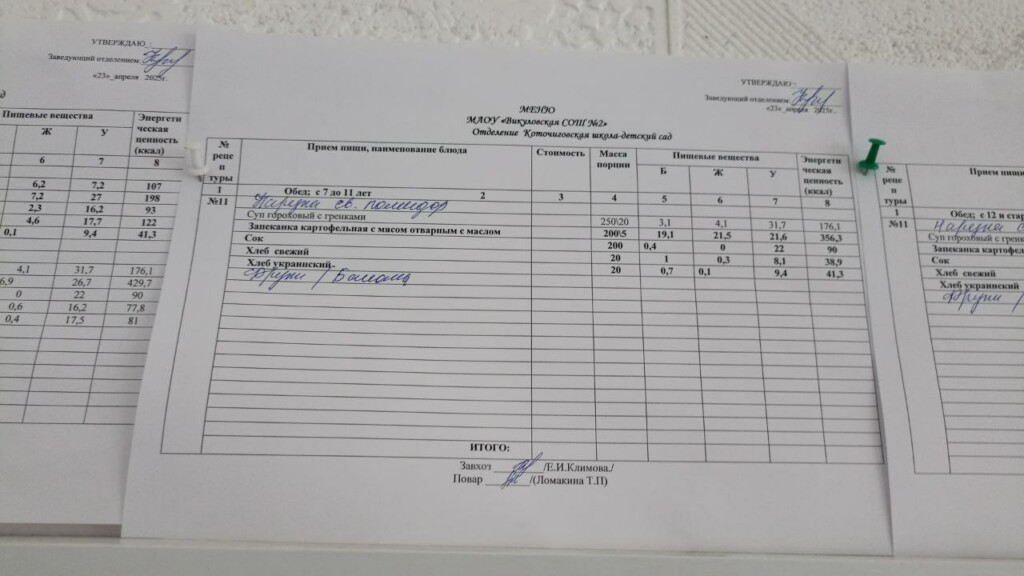 УТВЕРЖДАЮ :
Заведующий отделением
«23»_апреля 2025г.
Пищевые вещества Энергети ческая ценность (ккал)
Ж У
6 7 8
6,2 7,2 107
7,2 27 198
2,3 16,2 93
4,6 17,7 122
0,1 9,4 41,3
4,1 31,7 176,1
6,9 26,7 429,7
0 22 90
0,6 16,2 77,8
0,4 17,5 81
УТВЕРЖДАЮ :
Заведующий отделением
«23»_апреля 2025г.
МЕНЮ
МАОУ «Викуловская СОШ №2»
Отделение Коточиговская школа-детский сад
№ реце п туры Прием пищи, наименование блюда Стоимость Масса порции Пищевые вещества Энергети ческая ценность (ккал)
Б Ж У
1 2 3 4 5 6 7 8
Обед; с 7 до 11 лет
№11 Нарезка св. помидор
Суп гороховый с гренками 250\20 3,1 4,1 31,7 176,1
Запеканка картофельная с мясом отварным с маслом 200\5 19,1 21,5 21,6 356,3
Сок 200 0,4 0 22 90
Хлеб свежий 20 1 0,3 8,1 38,9
Хлеб украинский- 20 0,7 0,1 9,4 41,3
Фрукт /
ИТОГО:
Завхоз /Е.И.Климова./
Повар /(Ломакина Т.П)
№ реце п туры Прием пищи
1 Обед; с 12 и
№11 Нарезка
Суп гороховый с гренками
Запеканка
Сок
Хлеб свежий
Хлеб украинский
Фрукт /